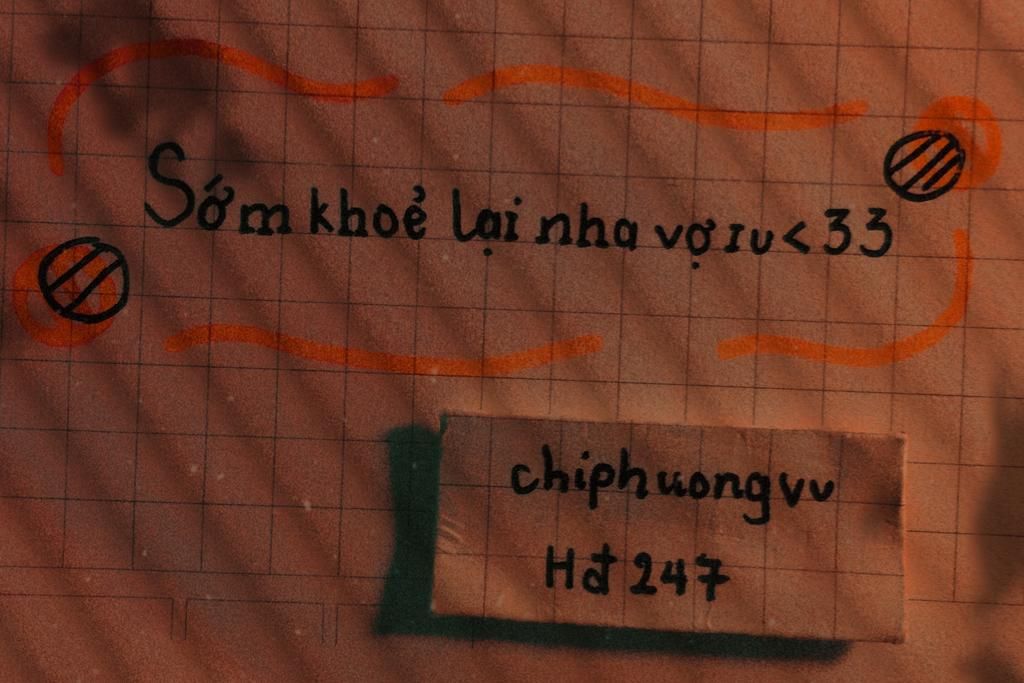 Sớm khoẻ lại nha vợ ɪu<33
chiphuongvu
Hđ 247